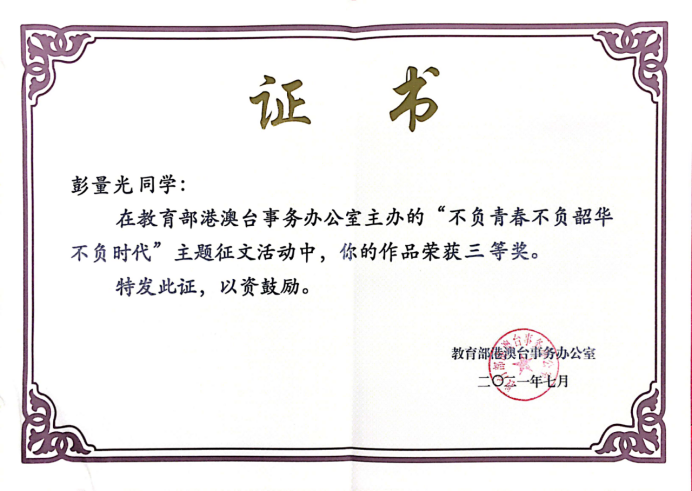 证书
彭量光同学：
在教育部港澳台事务办公室主办的“不负青春不负韶华
不负时代”主题征文活动中，你的作品荣获三等奖。
特发此证，以资鼓励。
教育部港澳台事务办公室
二〇二一年七月